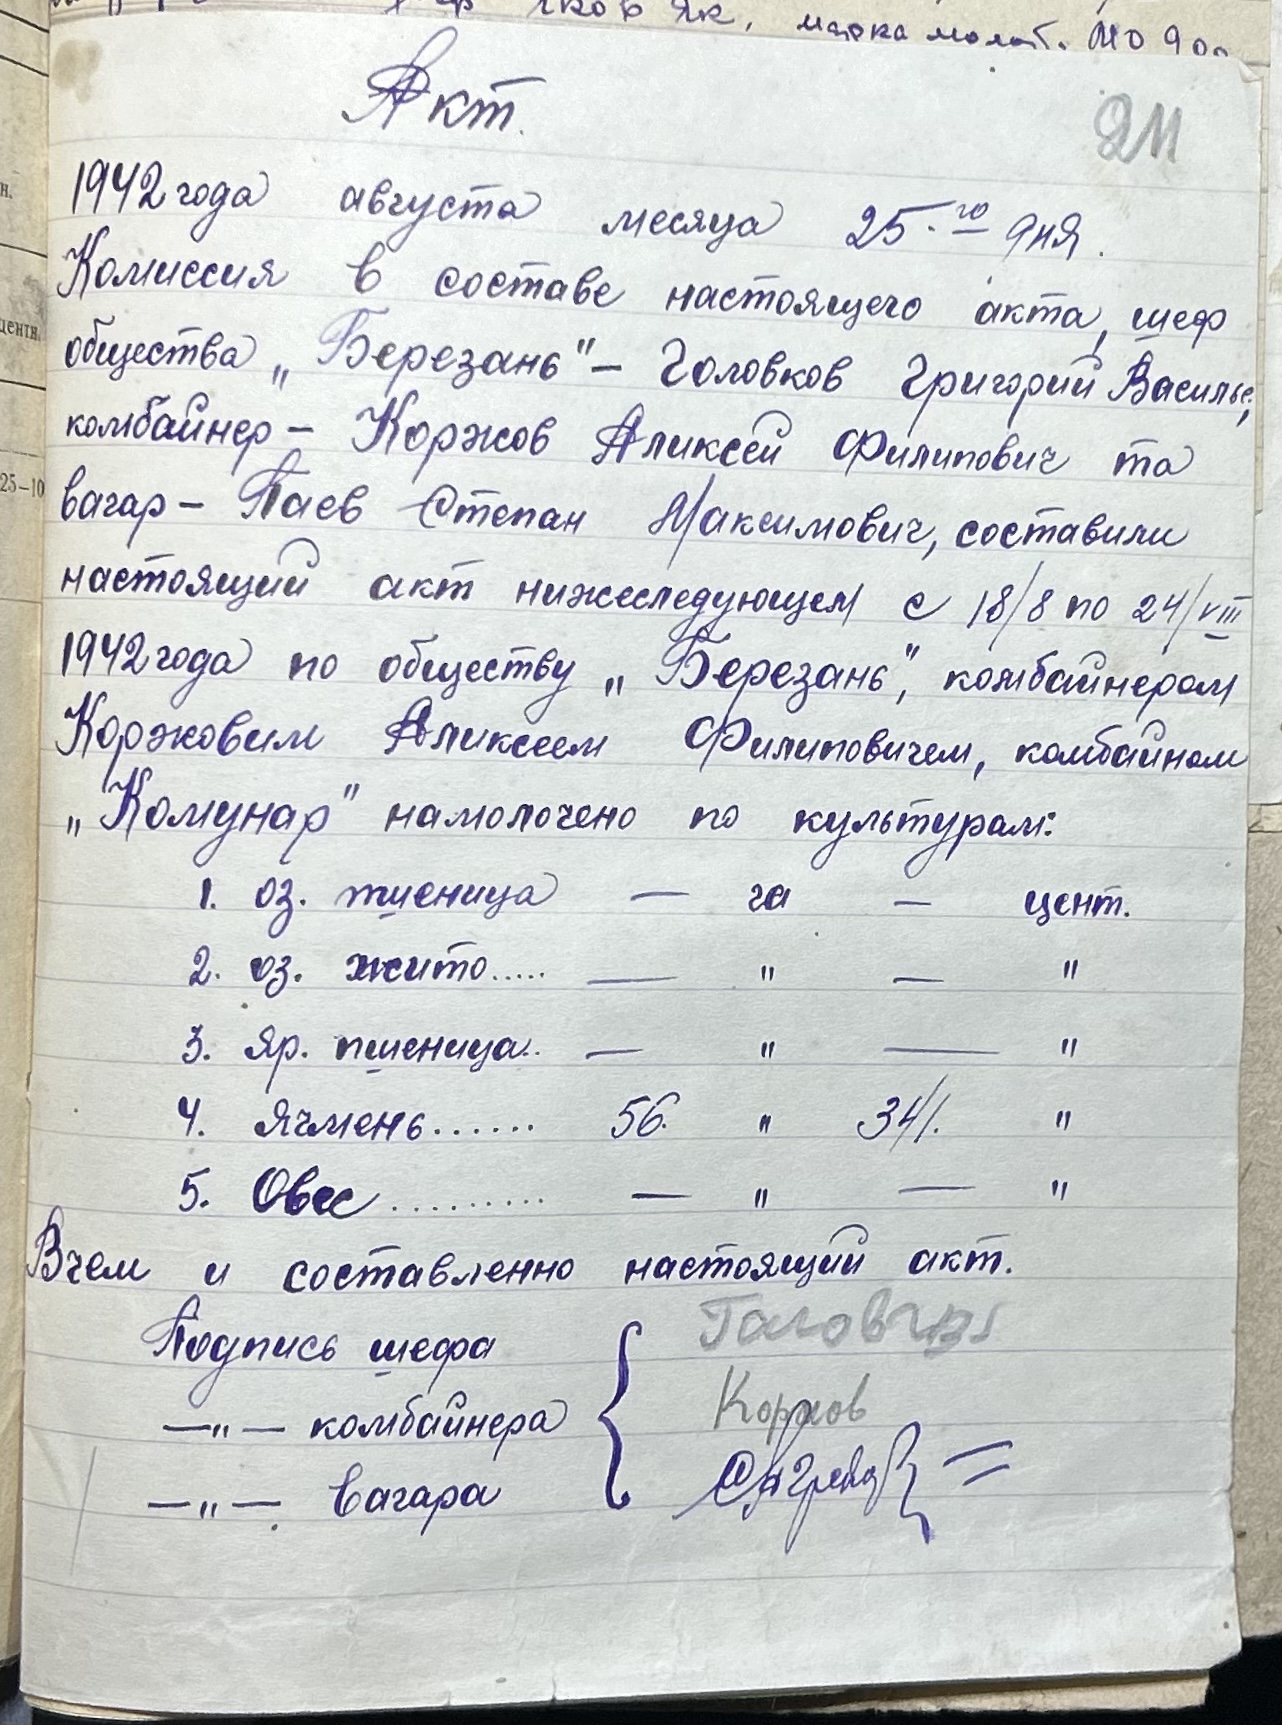 марка молот. МО 900
Акт.
211
1942 года августа месяца 25-го дня.
Комиссия в составе настоящего акта, шеф
общества „Березань" – Головков Григорий Василье,
комбайнер – Коржов Аликсей Филипович та
вагар – Паев Степан Максимович, составили
настоящий акт нижеследующем с 18/8 по 24/VIII
1942 года по обществу „Березань", комбайнером
Коржовим Аликсеем Филиповичем, комбайном
„Комунар" намолочено по культурам:
1. оз. пшеница — га — цент.
2. оз. жито..... — " — "
3. яр. пшеница.. — " — "
4. ячмень...... 56. " 341. "
5. Овес .......... — " — "
Вчем и составленно настоящий акт.
Подпись шефа
—"— комбайнера
Коржов
—"— вагара
25–10